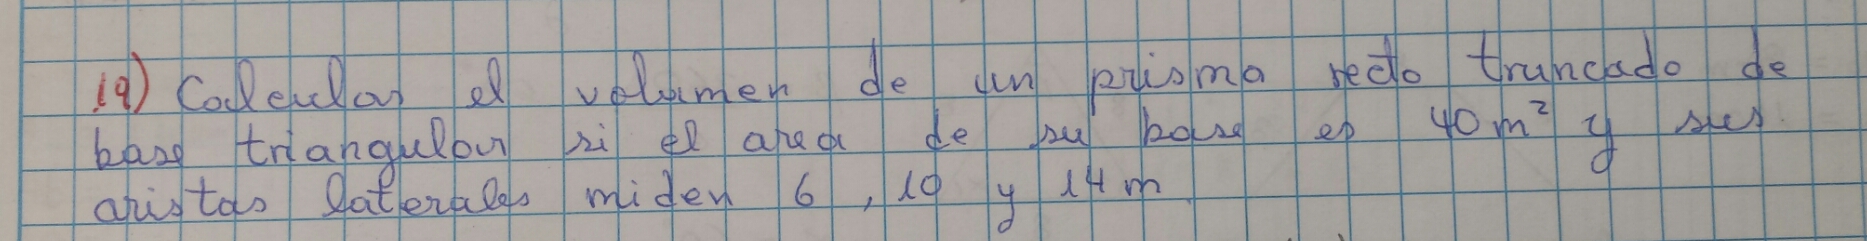 19) Calcular el volumen de un prisma recto truncado de
base triangular si el area de su base es 40 m² y sus
aristas laterales miden 6, 10 y 14 m